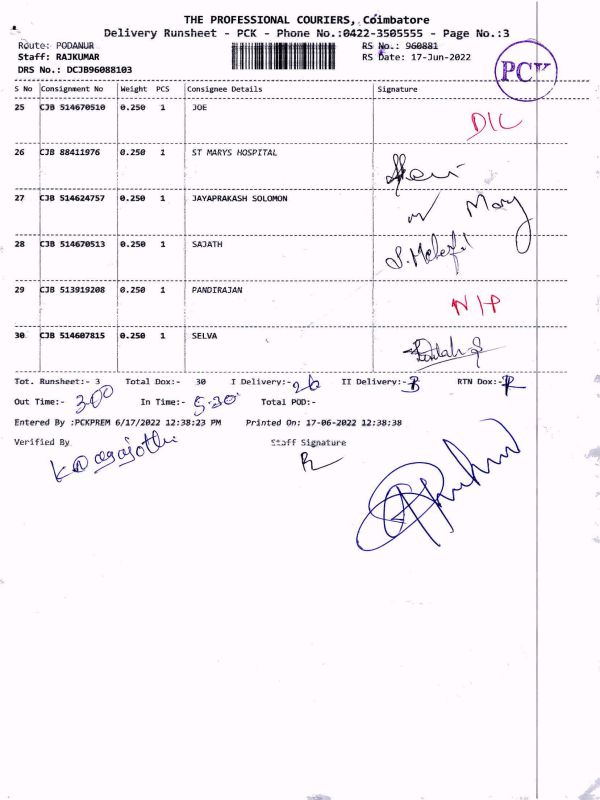 THE PROFESSIONAL COURIERS, Coimbatore
Delivery Runsheet - PCK - Phone No.:0422-3505555 - Page No.:3
Route: PODANUR RS No.: 960881
Staff: RAJKUMAR RS Date: 17-Jun-2022
DRS No.: DCJB96088103
PCK
S No Consignment No Weight PCS Consignee Details Signature
25 CJB 514670510 0.250 1 JOE
D/C
26 CJB 88411976 0.250 1 ST MARYS HOSPITAL
27 CJB 514624757 0.250 1 JAYAPRAKASH SOLOMON
Mary
28 CJB 514670513 0.250 1 SAJATH
29 CJB 513919208 0.250 1 PANDIRAJAN
N/P
30 CJB 514607815 0.250 1 SELVA
Tot. Runsheet:- 3 Total Dox:- 30 I Delivery:- 26 II Delivery:- RTN Dox:-
Out Time:- 3.00 In Time:- 5.30 Total POD:-
Entered By :PCKPREM 6/17/2022 12:38:23 PM Printed On: 17-06-2022 12:38:38
Verified By Staff Signature